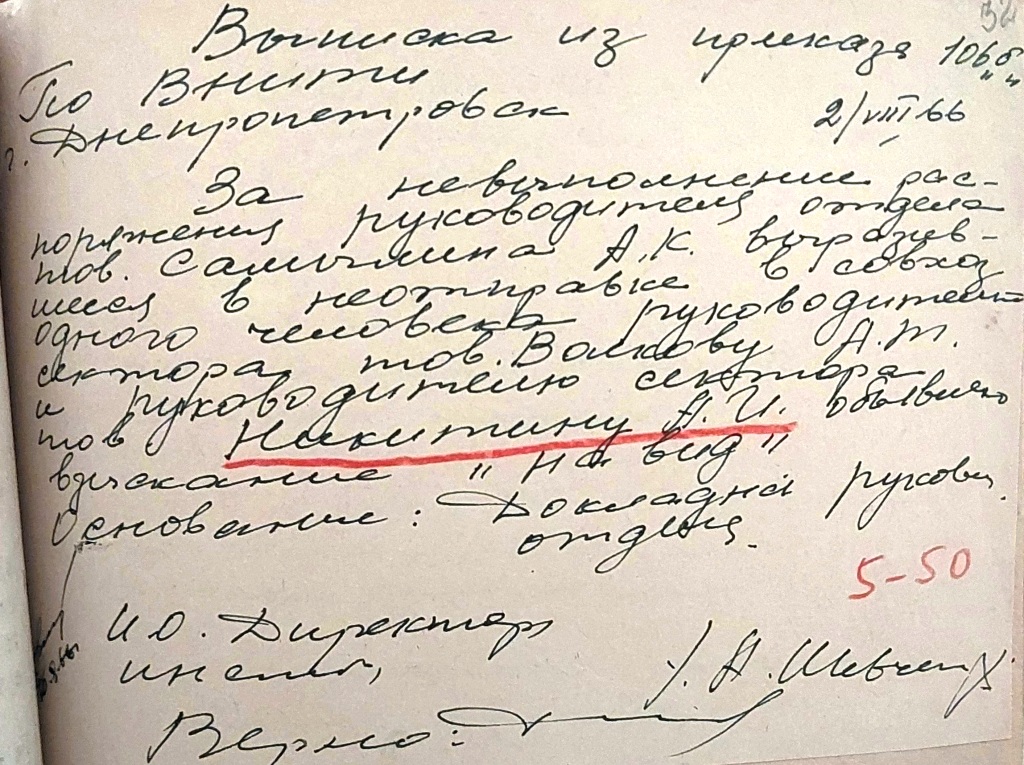 32
Выписка из приказа 106 "б"
По ВНИТИ
г. Днепропетровск 2/VIII 66
За невыполнение рас-
поряжения руководителя отдела
тов. Самылина А.К. выразив-
шееся в неотправке в совхоз
одного человека руководителю
сектора тов. Волкову А.Т.
и руководителю сектора
тов Никитину А.И. объявить
взыскание "на вид"
Основание: Докладная руковод.
отдела.
5-50
И О. Директор
инстит, А. Шевчен
Верно: